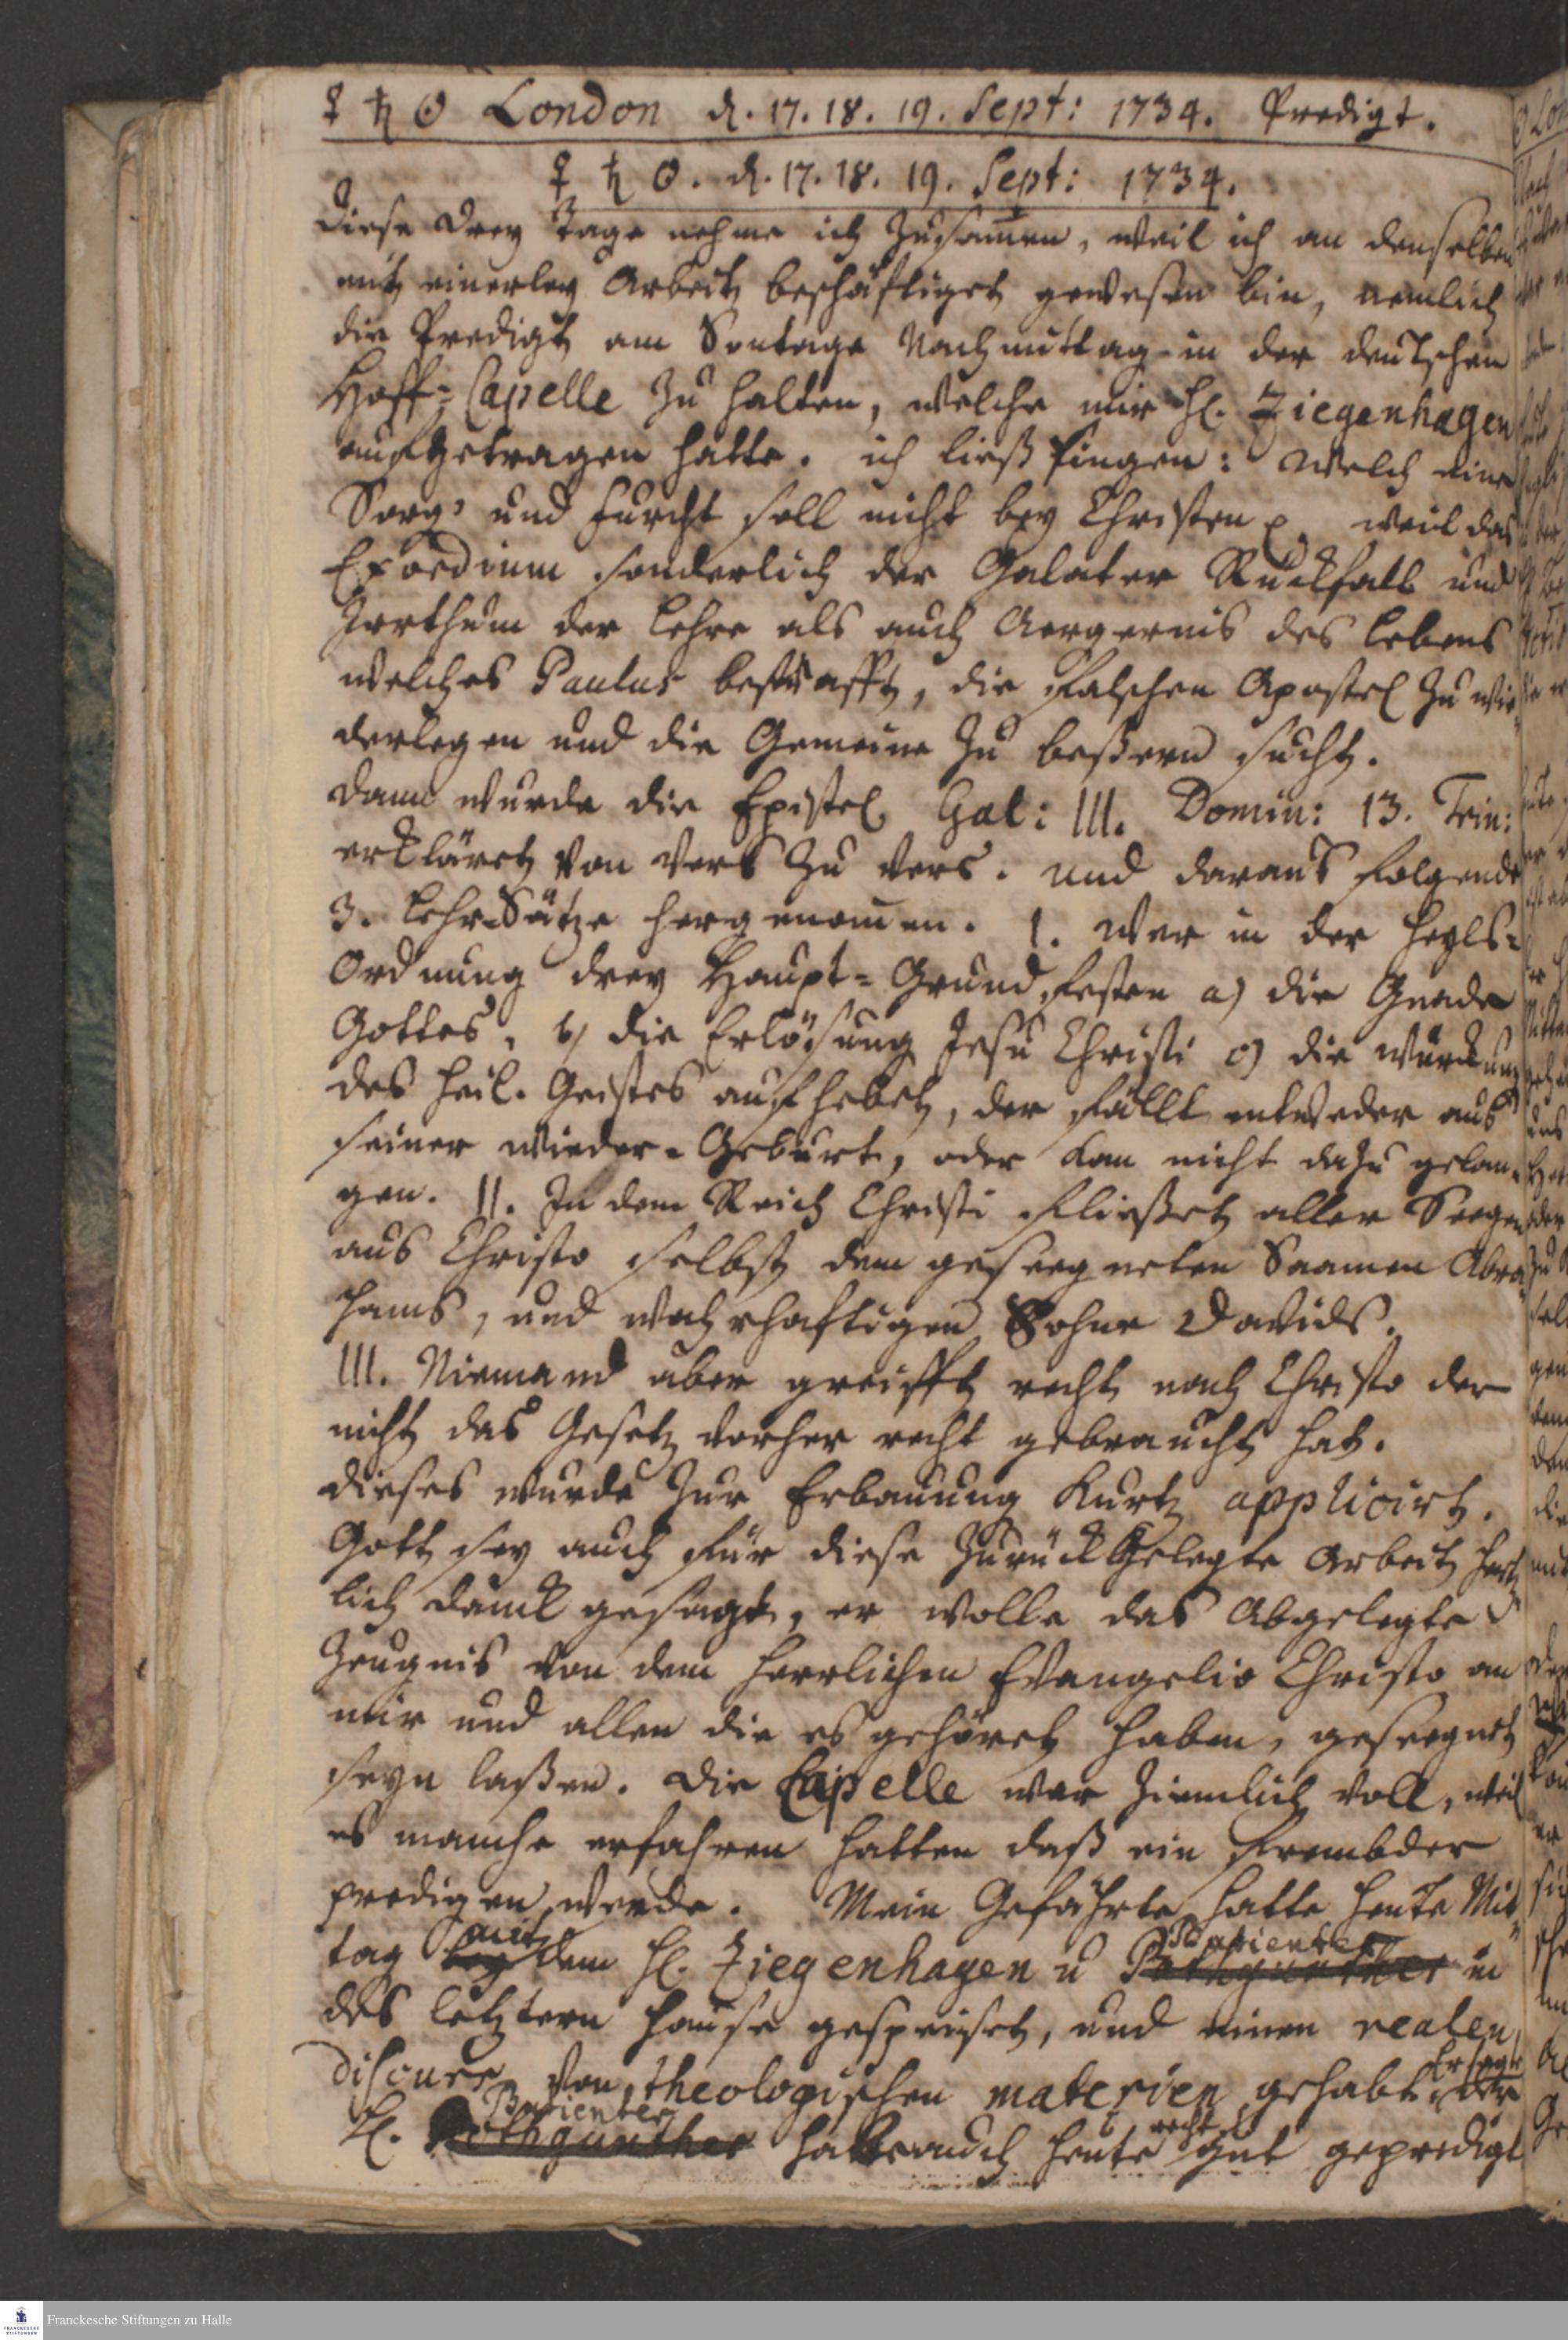 ♀ ♄ ☉ London d. 17. 18. 19. Sept: 1734. Predigt.
♀ ♄ ☉. d. 17. 18. 19. Sept: 1734.
Diese drey Tage nehme ich zusam̅en, weil ich an denselben
mit einerley Arbeit beschäftiget gewesen bin, nemlich
die Predigt am Sontage Nachmittag in der deutschen
Hoff-Capelle zu halten, welche mir H. Ziegenhagen
aufgetragen hatte. ich ließ singen: Welch eine
Sorg' und Furcht soll nicht bey Christen p. weil das
Exordium sonderlich der Galater Ruckfall und
Irrthum der Lehre als auch Aergernis des Lebens
welches Paulus bestrafft, die falschen Apostel zu wie-
derlegen und die Gemeine zu beßern sucht.
Dann wurde die Epistel Gal: III. Domin: 13. Trin:
erkläret von Vers zu Vers. und daraus folgende
3. Lehr-Sätze hergenom̅en. I. Wer in der Heyls-
Ordnung drey Haupt-Grundfesten a) die Gnade
Gottes, b) die Erlösung Jesu Christi c) die Würckung
des Heil. Geistes aufhebet, der fällt entweder aus
seiner Wieder-Geburt, oder kan nicht dazu gelan-
gen. II. In dem Reich Christi fließet aller Seegen
aus Christo selbst dem geseegneten Saamen Abra-
hams, und wahrhaftigen Sohne Davids.
III. Niemand aber greifft recht nach Christo der
nicht das Gesetz vorher recht gebraucht hat.
Dieses wurde zur Erbauung kurtz applicirt.
Gott sey auch für diese zurückgelegte Arbeit hertz
lich danck gesagt, er wolle das Abgelegte
Zeugnis von dem herrlichen Evangelio Christo an
mir und allen die es gehöret haben, geseegnet
seyn laßen. Die Capelle war ziemlich voll, weil
es manche erfahren hatten daß ein Frembder
predigen werde. Mein Gefährte hatte heute Mit-
tag bey mit dem H. Ziegenhagen u Butienter in
des letztern Hause gespeiset, und einen realen
discurs von theologischen materien gehabt. Er sagte
H. Butienter hatte auch heute recht gut gepredigt